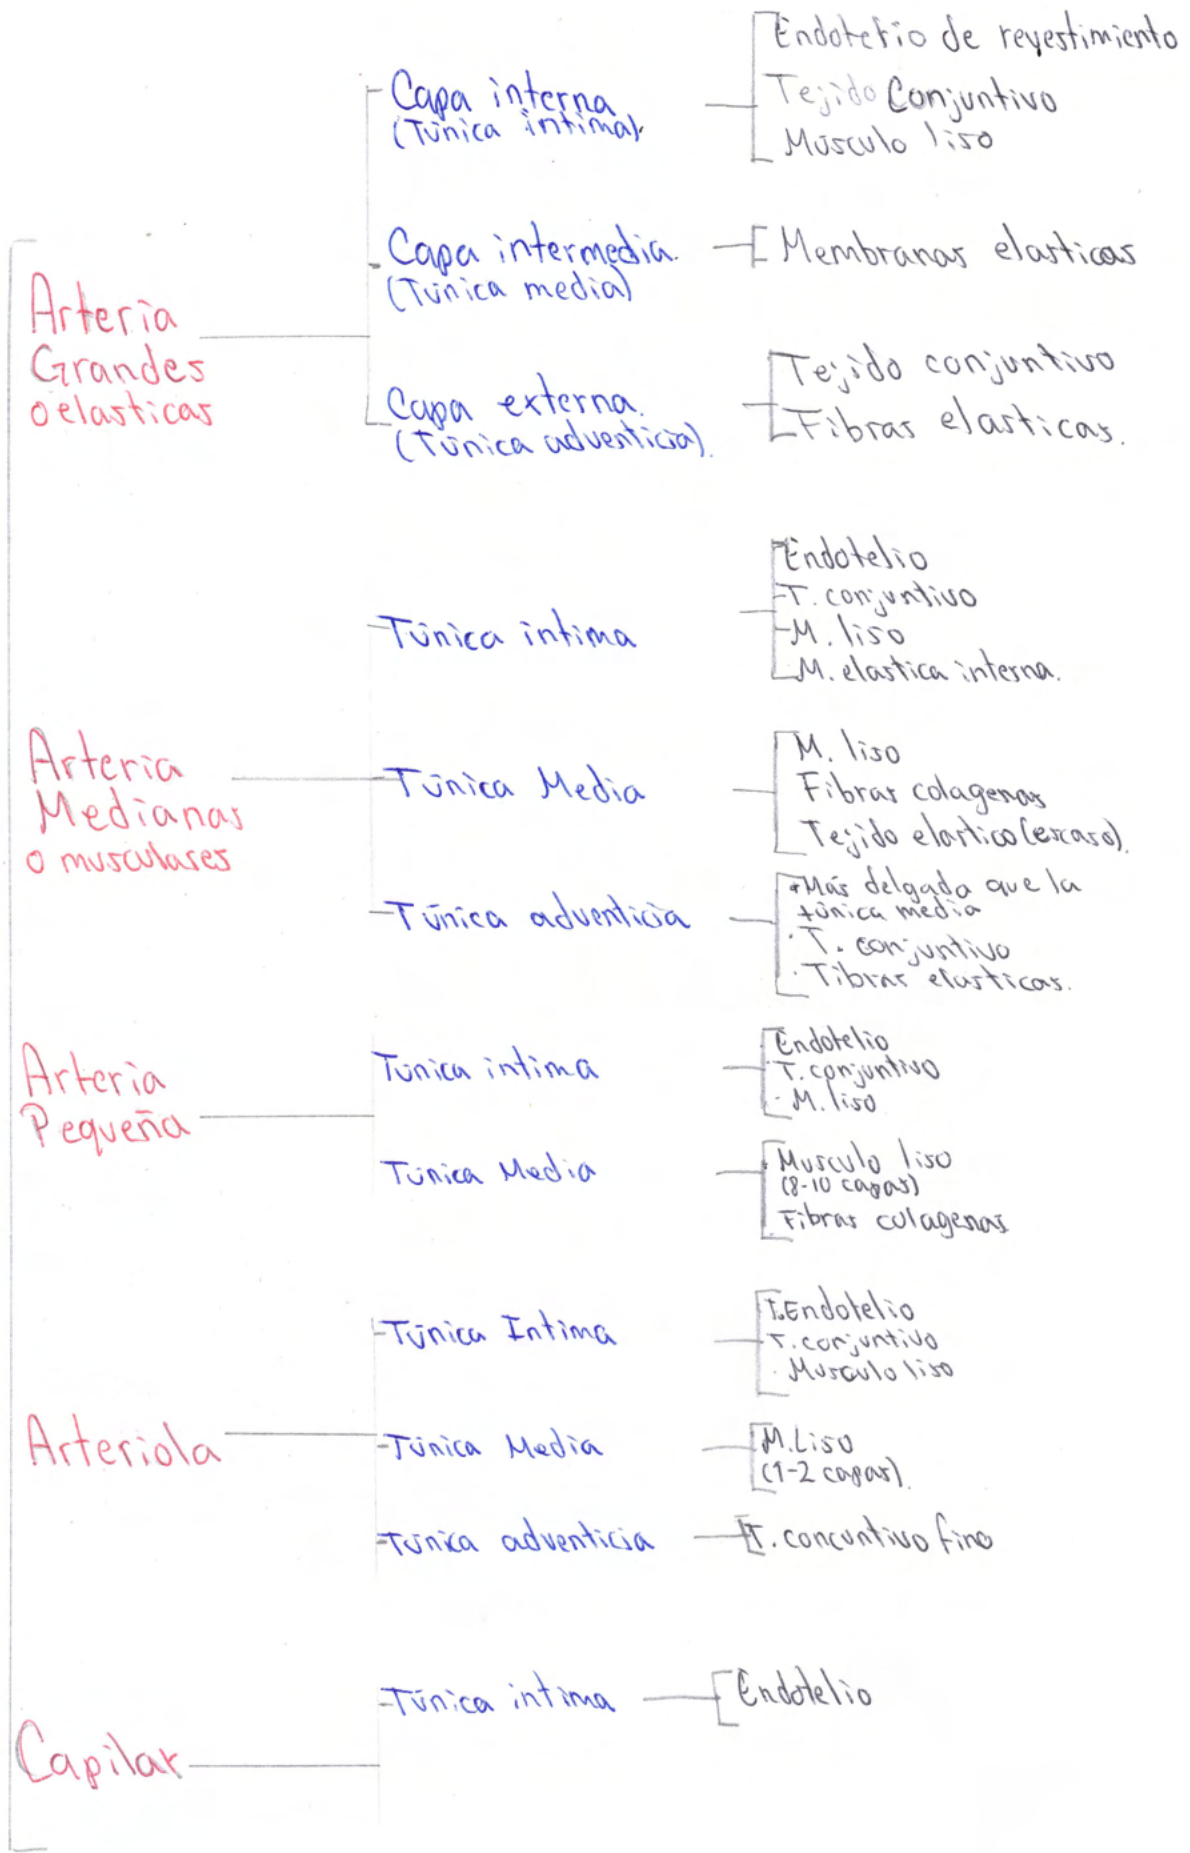 Arteria
Grandes
o elasticas
Capa interna
(Túnica íntima).
Endotelio de revestimiento
Tejido Conjuntivo
Músculo liso
Capa intermedia.
(Túnica media)
Membranas elasticas
Capa externa.
(Túnica adventicia).
Tejido conjuntivo
Fibras elasticas.
Arteria
Medianas
o musculares
Túnica intima
Endotelio
T. conjuntivo
M. liso
M. elastica interna.
Túnica Media
M. liso
Fibras colagenas
Tejido elastico (escaso).
Túnica adventicia
Más delgada que la
túnica media
T. conjuntivo
Tibras elasticas.
Arteria
Pequeña
Túnica intima
Endotelio
T. conjuntivo
M. liso
Túnica Media
Musculo liso
(8-10 capas)
Fibras colagenas
Arteriola
Túnica Intima
T. Endotelio
T. conjuntivo
Musculo liso
Túnica Media
M. Liso
(1-2 capas).
Túnica adventicia
T. concuntivo fino
Capilar
Túnica intima
Endotelio